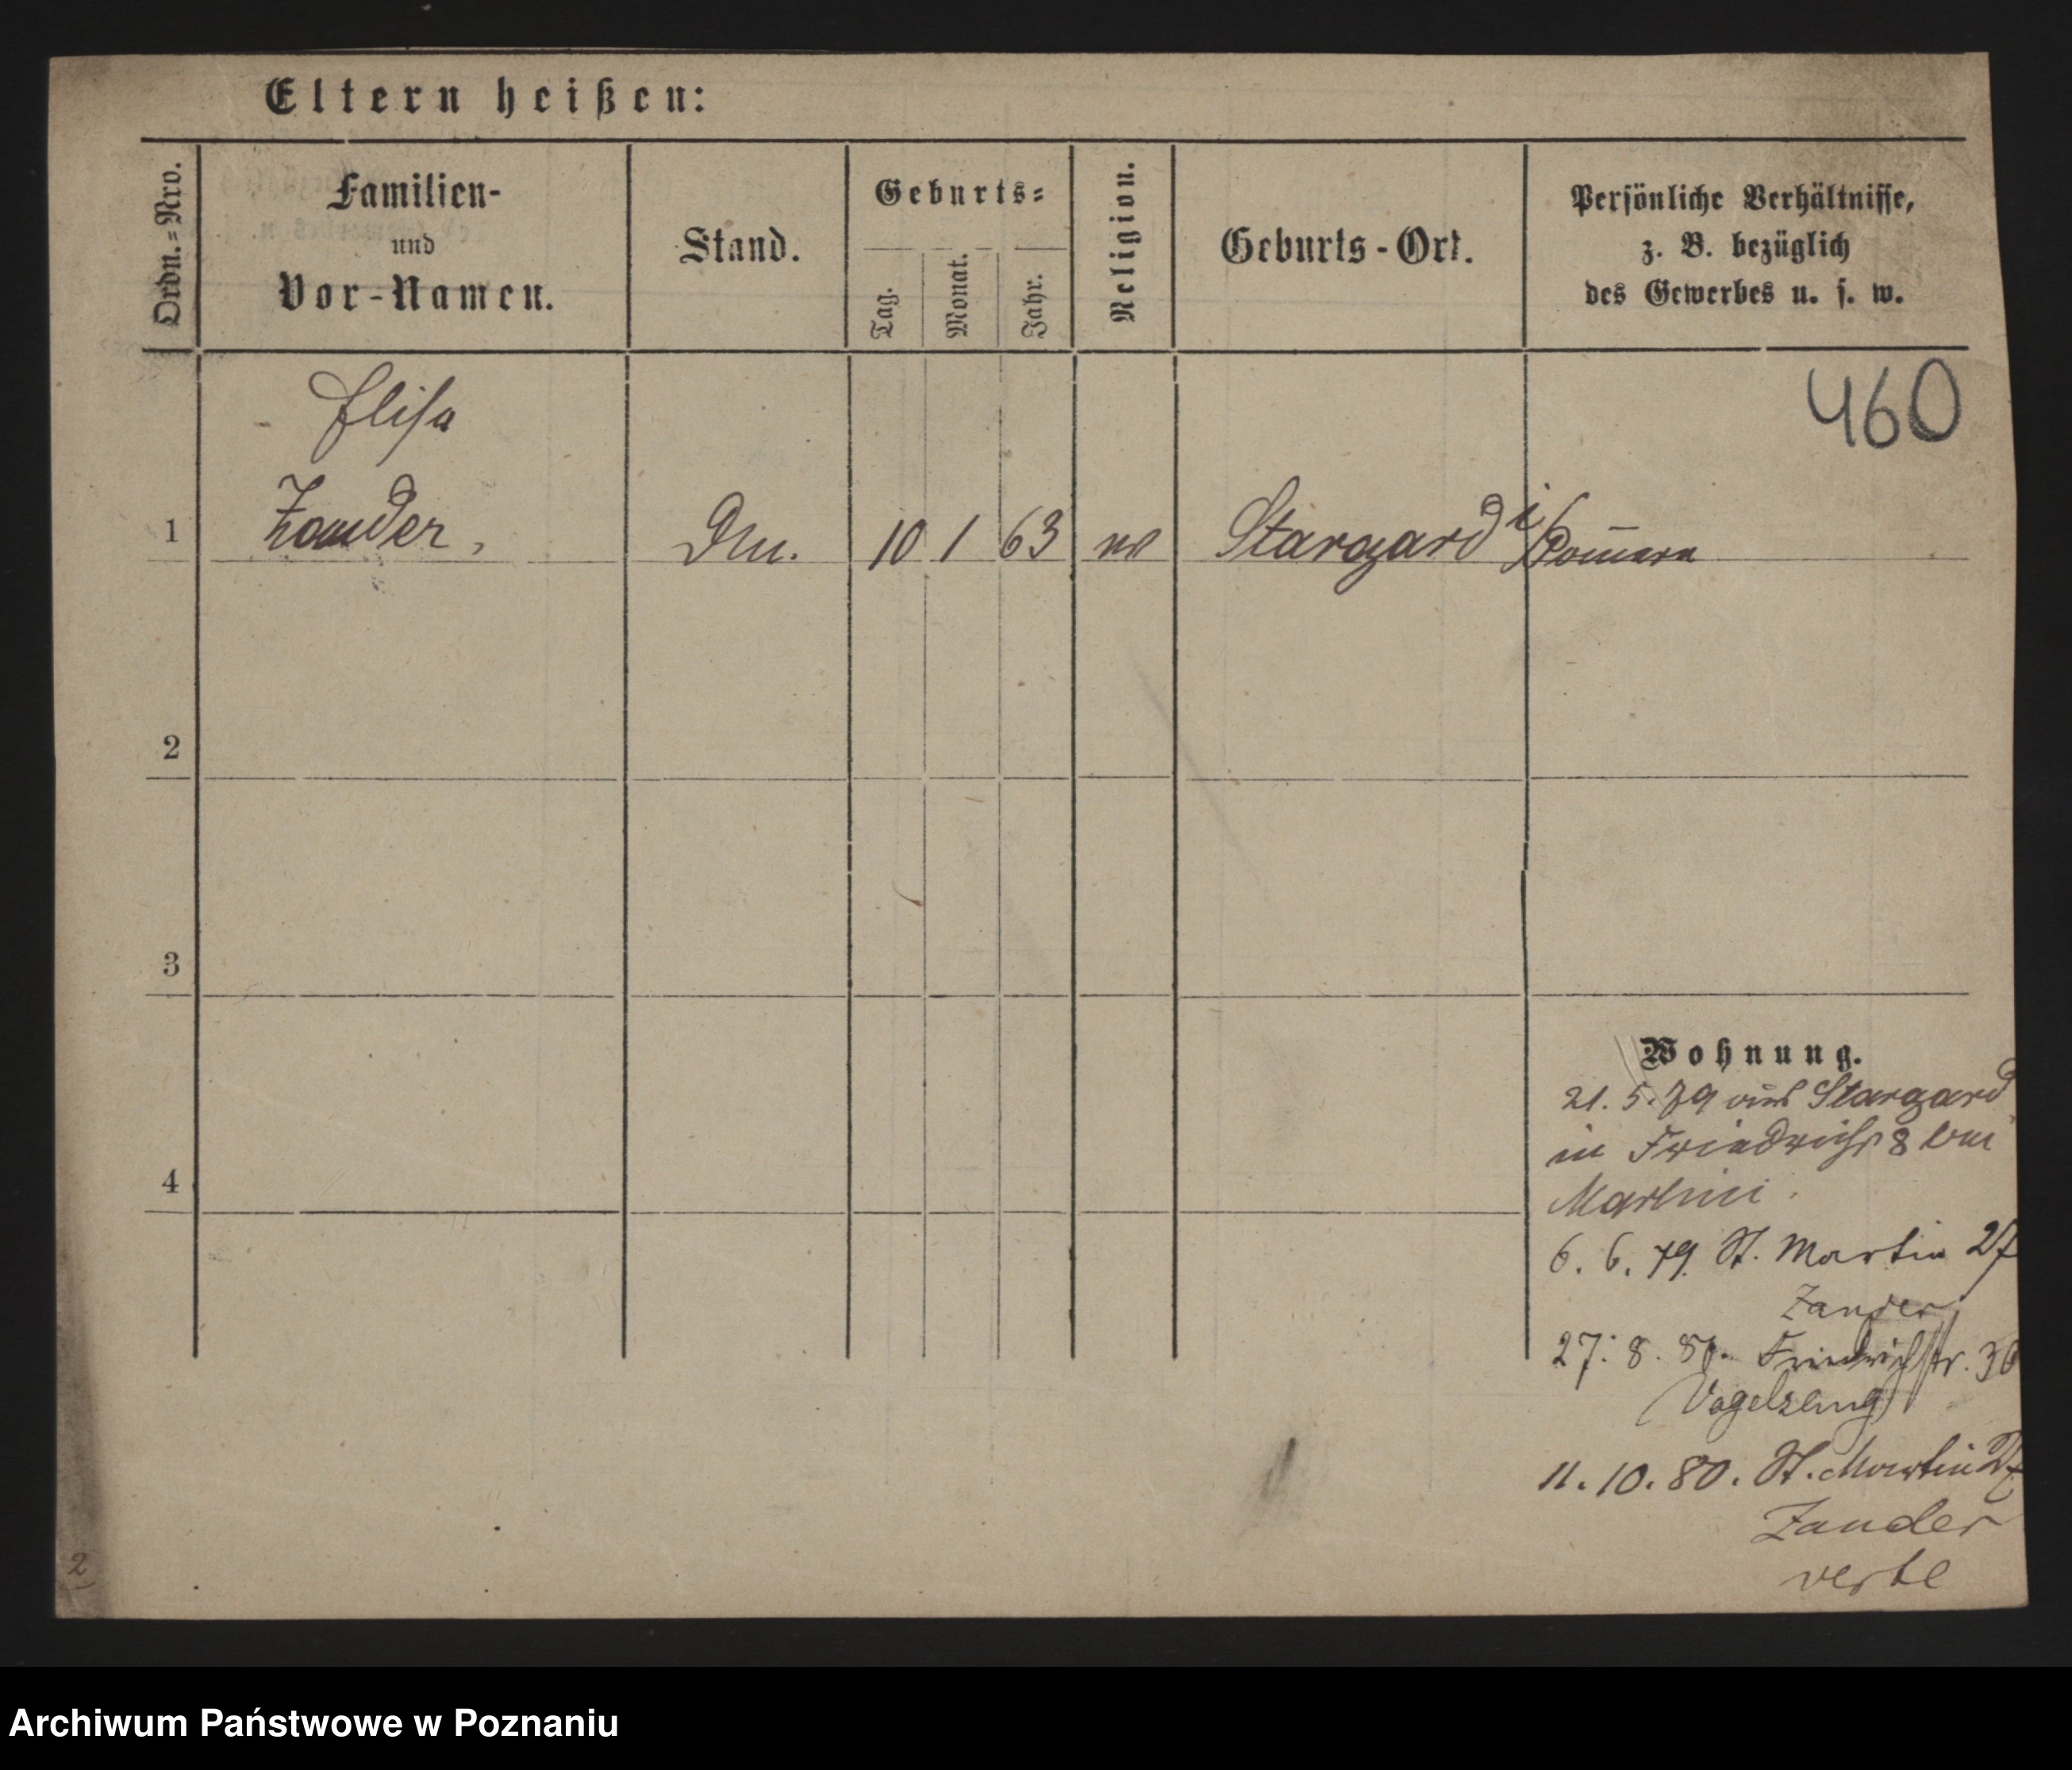 Eltern heißen:
Ordn.=Nro.
Familien-
und
Vor-Namen.
Stand.
Geburts=
Tag.
Monat.
Jahr.
Religion.
Geburts-Ort.
Persönliche Verhältnisse,
z. B. bezüglich
des Gewerbes u. s. w.
460
Elisa
1 Zander, 10 1 63 Stargard i/Pomern
2
3
Wohnung.
21. 5. 79 aus Stargard
in Friedrichstr 8 bei
4
6. 6. 79. St. Martin 27
Zander
27. 8. 80. Friedrichstr. 30
11. 10. 80. St. Martin 27
Zander
2
Archiwum Państwowe w Poznaniu